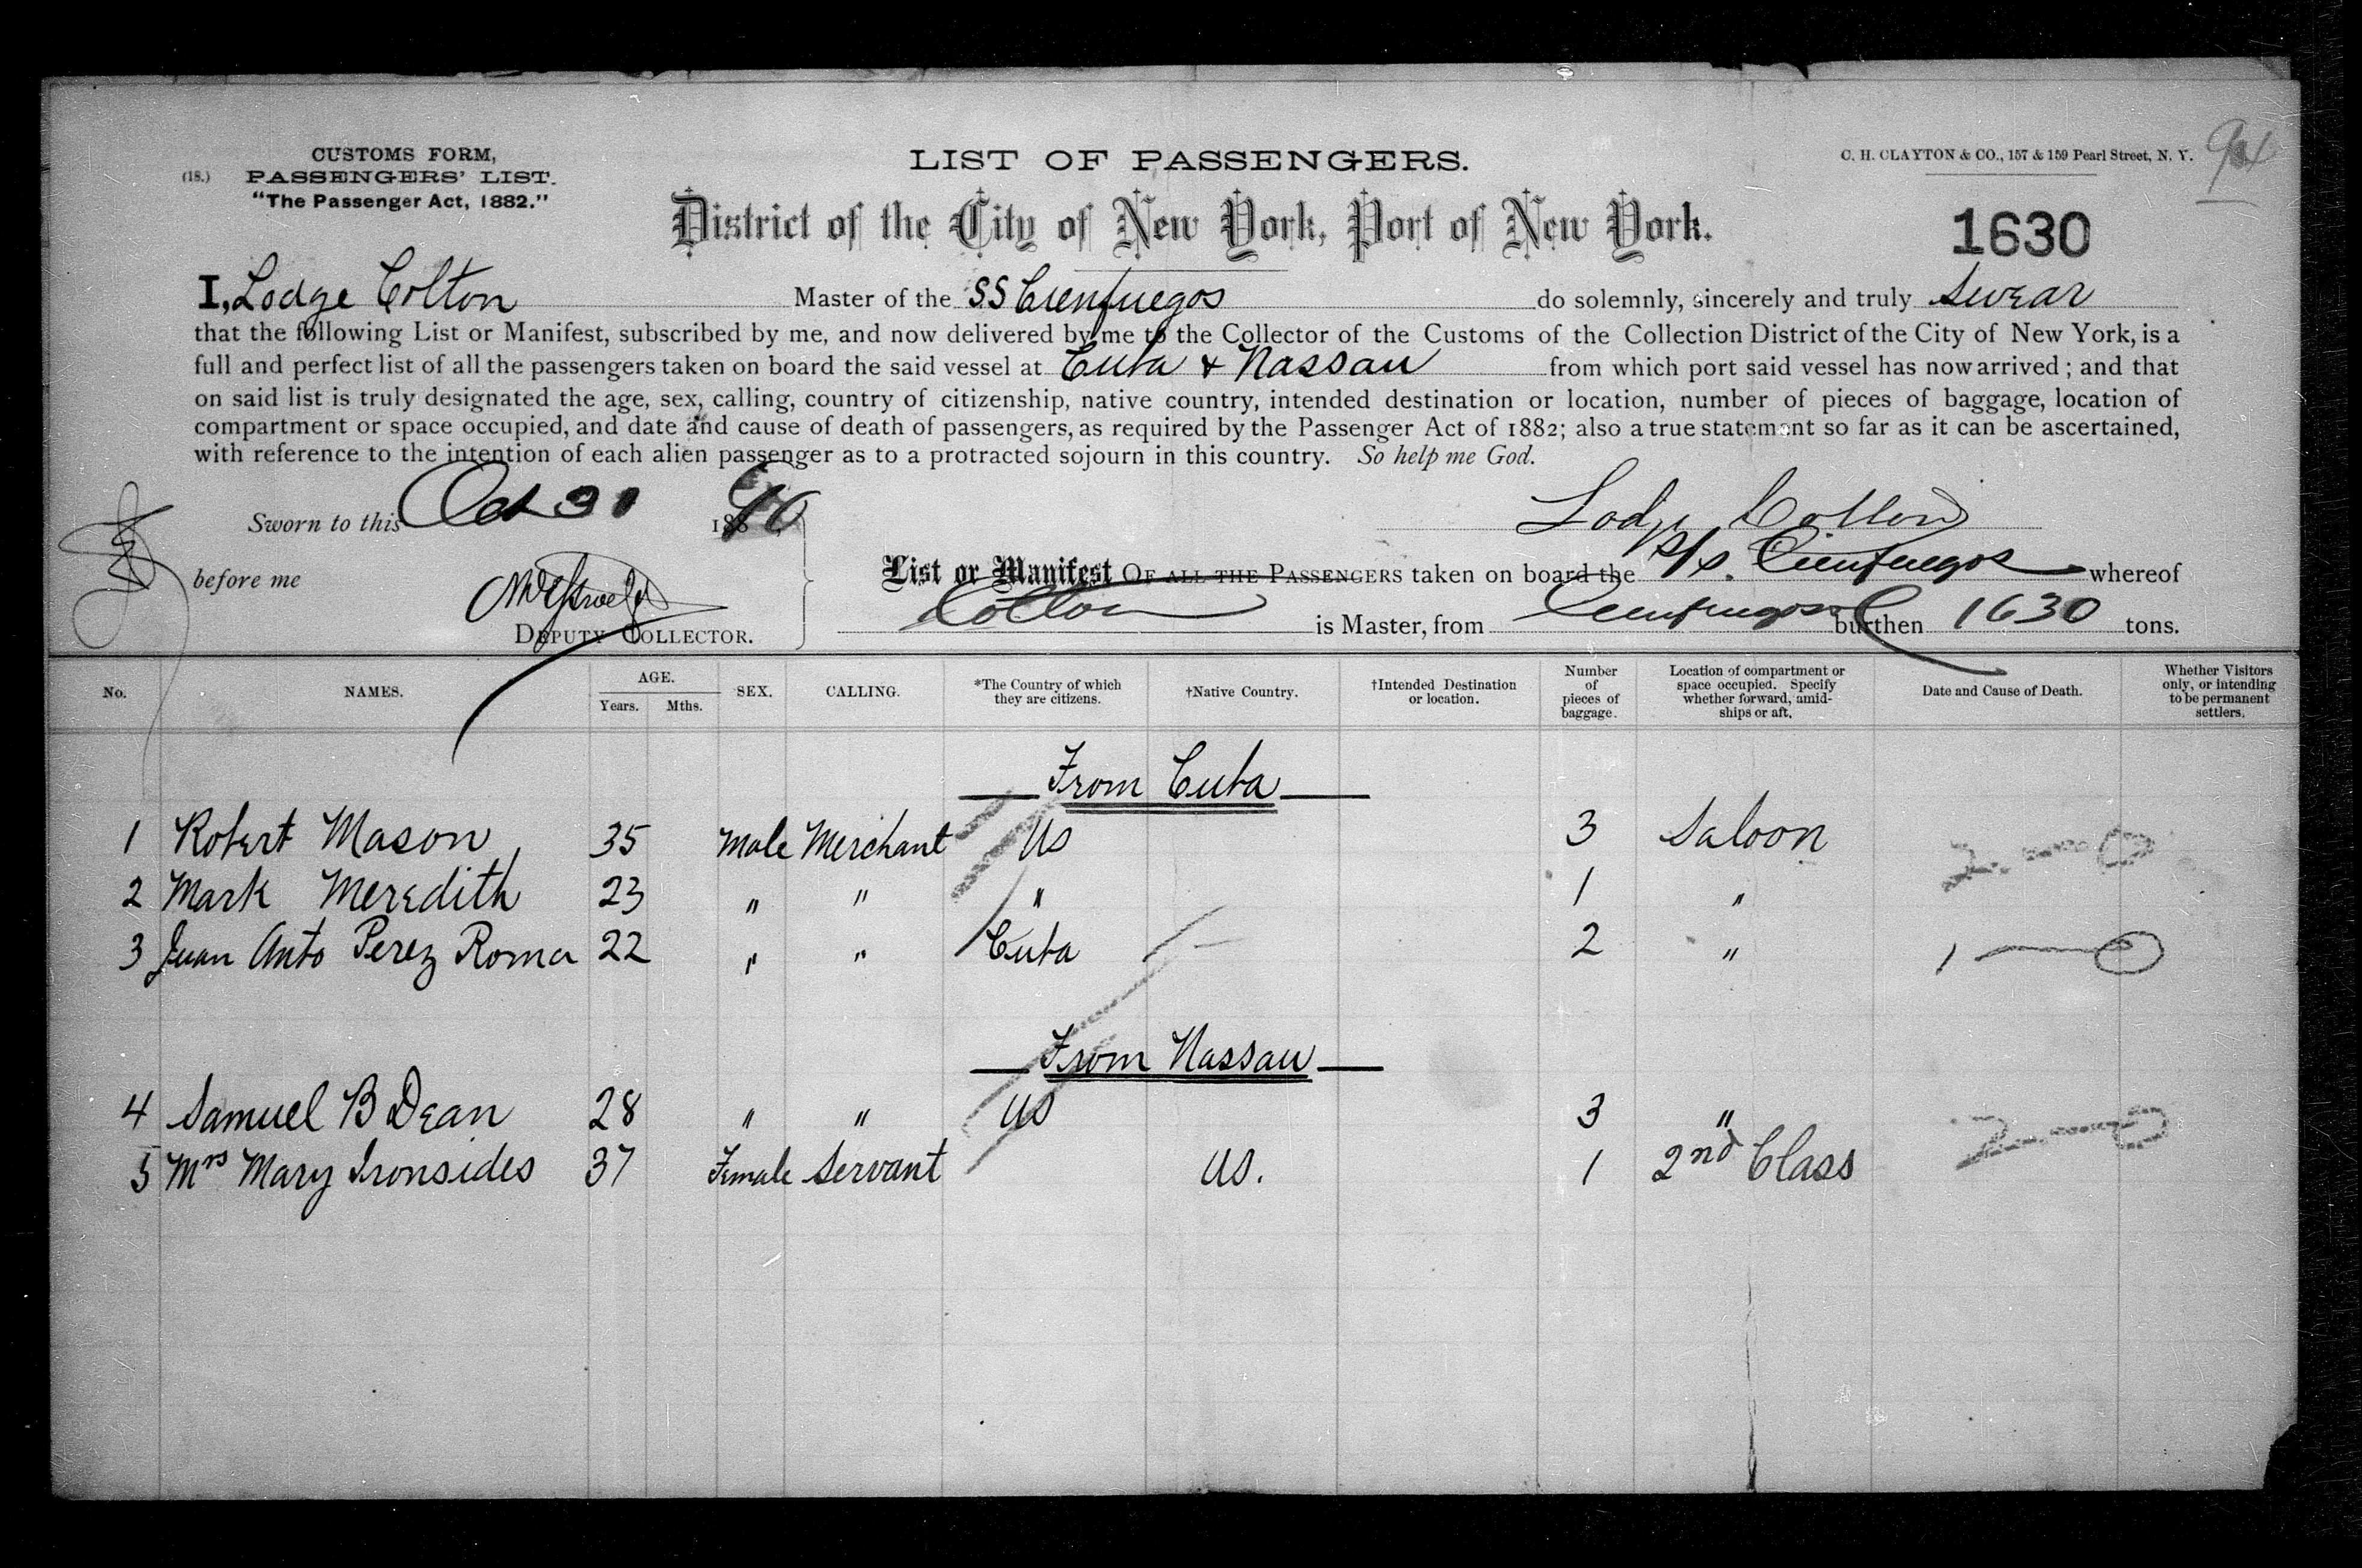 CUSTOMS FORM,
(18.) PASSENGERS' LIST.
"The Passenger Act, 1882."
LIST OF PASSENGERS.
C. H. CLAYTON & CO., 157 & 159 Pearl Street, N. Y.
District of the City of New York, Port of New York.
1630
I, Lodge Colton Master of the SS Cienfuegos do solemnly, sincerely and truly Swear
that the following List or Manifest, subscribed by me, and now delivered by me to the Collector of the Customs of the Collection District of the City of New York, is a
full and perfect list of all the passengers taken on board the said vessel at Cuba & Nassau from which port said vessel has now arrived; and that
on said list is truly designated the age, sex, calling, country of citizenship, native country, intended destination or location, number of pieces of baggage, location of
compartment or space occupied, and date and cause of death of passengers, as required by the Passenger Act of 1882; also a true statement so far as it can be ascertained,
with reference to the intention of each alien passenger as to a protracted sojourn in this country. So help me God.
Sworn to this Oct 31 188 90 Lodge Colton
before me
List or Manifest OF ALL THE PASSENGERS taken on board the s/s. Cienfuegos whereof
DEPUTY COLLECTOR. Colton is Master, from Cienfuegos burthen 1630 tons.
No. NAMES. AGE. Years. Mths. SEX. CALLING. *The Country of which they are citizens. †Native Country. †Intended Destination or location. Number of pieces of baggage. Location of compartment or space occupied. Specify whether forward, amidships or aft. Date and Cause of Death. Whether Visitors only, or intending to be permanent settlers.
From Cuba
1 Robert Mason 35 Male Merchant US 3 Saloon 2 — O
2 Mark Meredith 23 " " " 1 "
3 Juan Anto Perez Roma 22 " " Cuba 2 " 1 — O
From Nassau
4 Samuel B Dean 28 " " US 3 " 2 — O
5 Mrs Mary Ironsides 37 Female Servant US. 1 2nd Class